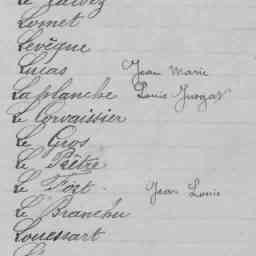 Lomet
Levêque
Lucas Jean Marie
Laplanche Louis
Le Corvaissier
Le Gros
Le Pêtre
Le Fort Jean Louis
Le Branchu
Louessart